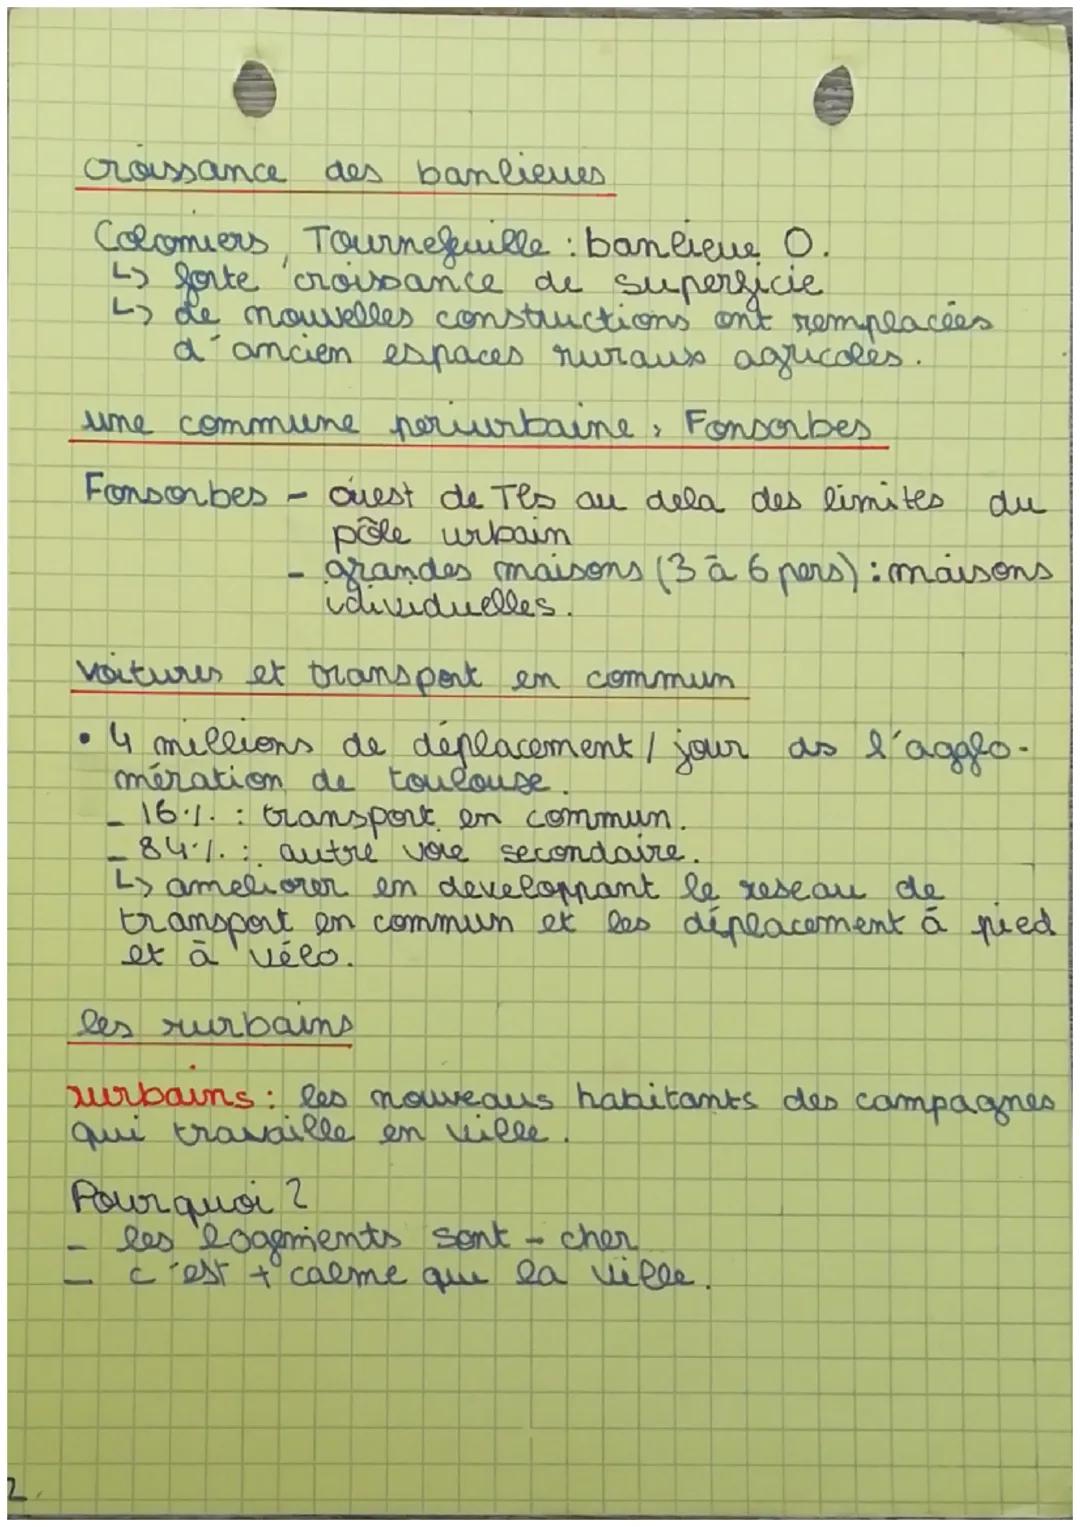 croissance des banlieues
Colomiers, Tournefeuille : banlieue O.
↳ forte croissance de superficie
↳ de nouvelles constructions ont remplacées
d'ancien espaces ruraux agricoles.
une commune periurbaine, Fonsorbes
Fonsorbes - ouest de Tls au dela des limites du
pôle urbain
- grandes maisons (3 à 6 pers) : maisons
idividuelles.
voitures et transport en commun
• 4 millions de déplacement / jour ds l'agglo-
mération de toulouse.
- 16 % : transport en commun.
- 84 % : autre voie secondaire.
↳ ameliorer en developpant le reseau de
transport en commun et les déplacement à pied
et à vélo.
les rurbains
rurbains : les nouveaus habitants des campagnes
qui travaille en ville.
Pourquoi ?
- les logements sont - cher
- c'est + calme que la ville.
2.